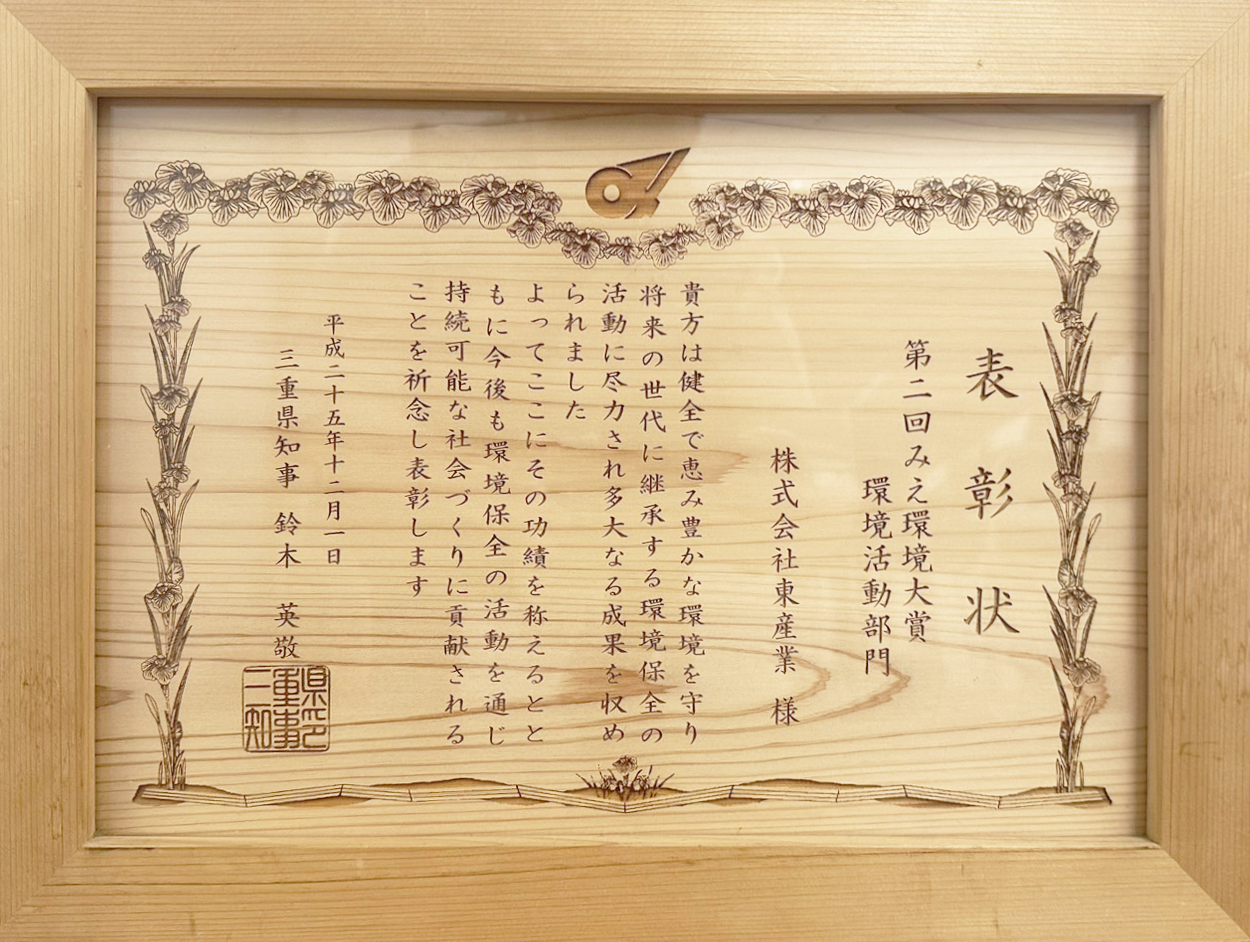 表彰状
第二回みえ環境大賞
環境活動部門
株式会社東産業 様
貴方は健全で恵み豊かな環境を守り
将来の世代に継承する環境保全の
活動に尽力され多大なる成果を収め
られました
よってここにその功績を称えるとと
もに今後も環境保全の活動を通じ
持続可能な社会づくりに貢献される
ことを祈念し表彰します
平成二十五年十二月一日
三重県知事 鈴木 英敬
三重県知事印